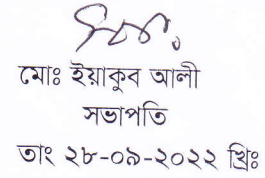 মোঃ ইয়াকুব আলী
সভাপতি
তাং ২৮-০৯-২০২২ খ্রিঃ